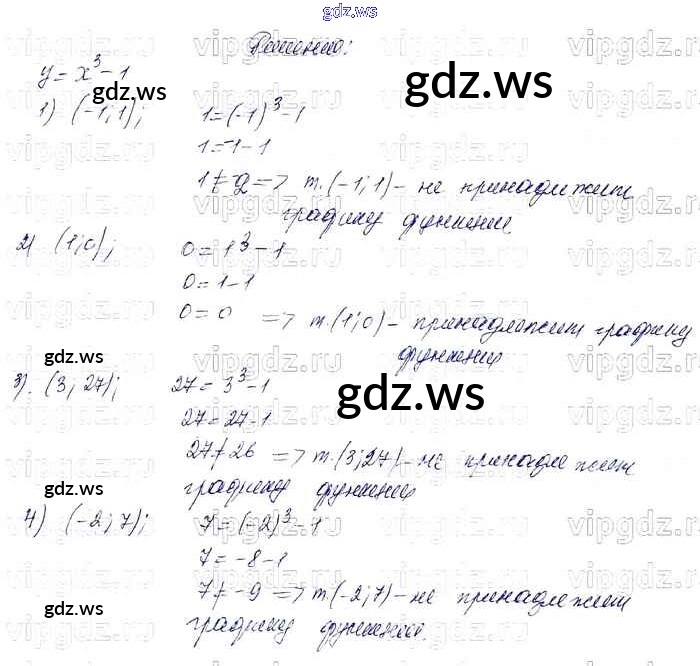 gdz.ws
Решение:
y = x³ - 1
gdz.ws
gdz.ws
1) (-1; 1); 1 = (-1)³ - 1
1 = 1 - 1
1 ≠ 2 => т. (-1; 1) - не принадлежит
графику функции.
2) (1; 0); 0 = 1³ - 1
0 = 1 - 1
0 = 0 => т. (1; 0) - принадлежит графику
функции
gdz.ws
3). (3; 27); 27 = 3³ - 1
gdz.ws
27 = 27 - 1
27 ≠ 26 => т. (3; 27) - не принадлежит
графику функции
gdz.ws
4) (-2; 7); 7 = (-2)³ - 1
7 = -8 - 1
7 ≠ -9 => т. (-2; 7) - не принадлежит
графику функции.
gdz.ws
gdz.ws
vipgdz.ru